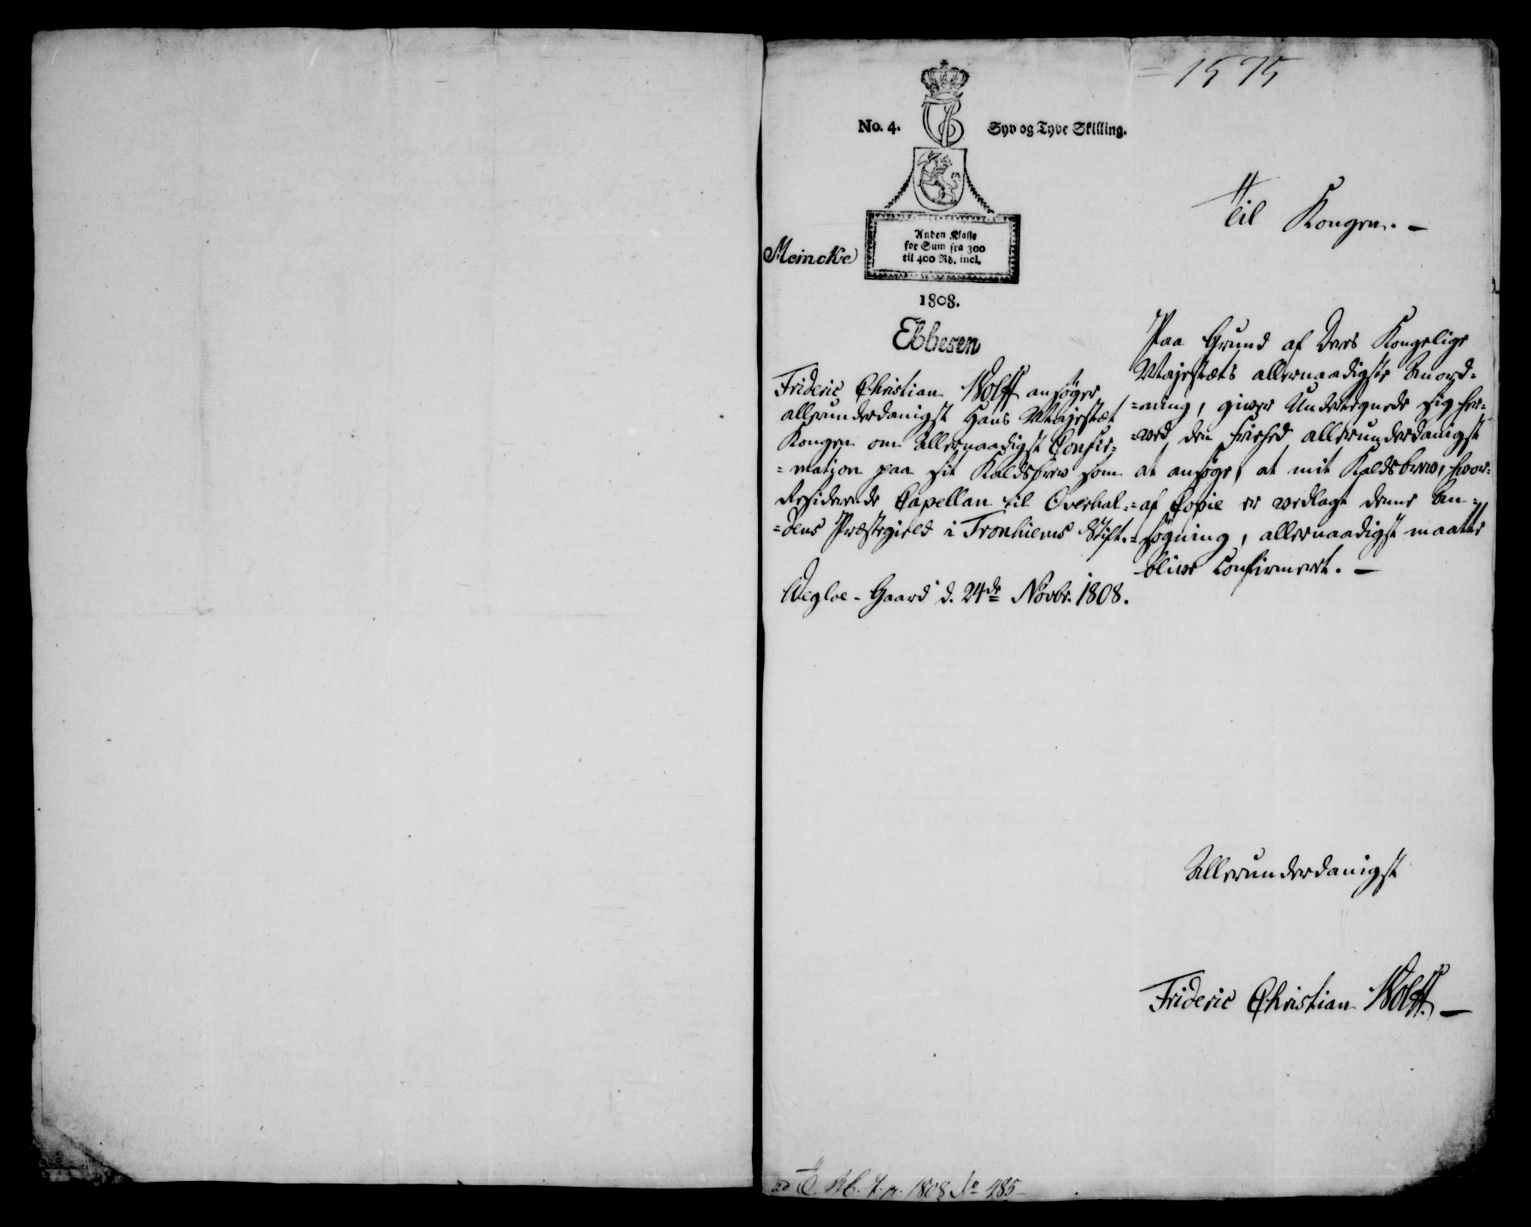 1575
No. 4. Syv og Tyve Skilling.
Anden Klasse
for Sum fra 300
til 400 Rd. incl.
Meincke
1808.
Ebbesen
Frideric Christian Wolff ansøger
allerunderdanigst Hans Majestæt
Kongen om Allernaadigst Confir=
=mation paa sit Kaldsbrev som
Residerende Capellan til Overhal=
=dens Præstegield i Tronhiems Stift.
Wegloe-Gaard d. 24de Novbr. 1808.
Til Kongen. —
Paa Grund af Deres Kongelige
Majestæts allernaadigste Anord=
=ning, giver Undertegnede sig her=
=ved den Friehed allerunderdanigst
at ansøge, at mit Kaldsbrev, hvor=
=af Copie er vedlagt denne An=
=søgning, allernaadigst maatte
blive Confirmeret. —
Allerunderdanigst
Frideric Christian Wolff. —
1808 No 485